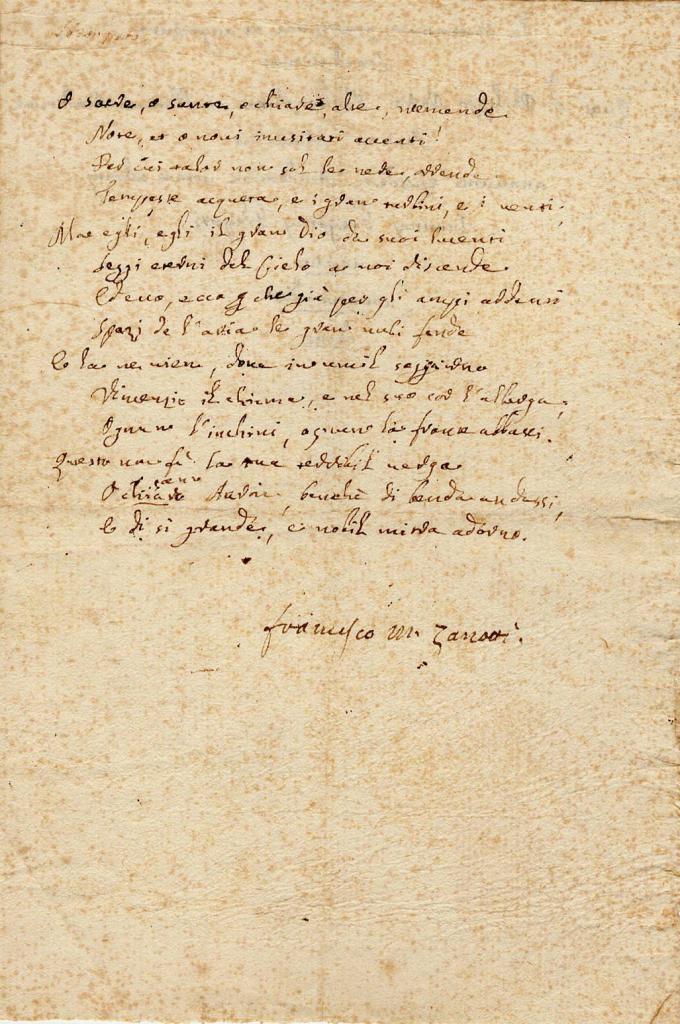 Stampato
O sacre, o sante, o chiare, alte, tremende
Note, et o novi inusitati accenti!
Per cui talor non sol le nere, orrende
Tempeste acqueta, e i gran turbini, e i venti;
Ma egli, egli il gran Dio da suoi lucenti
Seggi eterni del Cielo a noi discende
Ed ecco, ecco che già per gli ampi ardenti
Spazj de l'aria le gran nubi fende
E là ne viene, dove in umil soggiorno
Vincenzio il chiama, e nel suo cor l'alberga;
Ognun l'inchini, o giunto la fronte abbassi.
Questo non fè la tua terribil verga
O chiaro Aron, benchè di benda andassi,
E di sì grande, e nobil mitra adorno.
Francesco M. Zanotti.